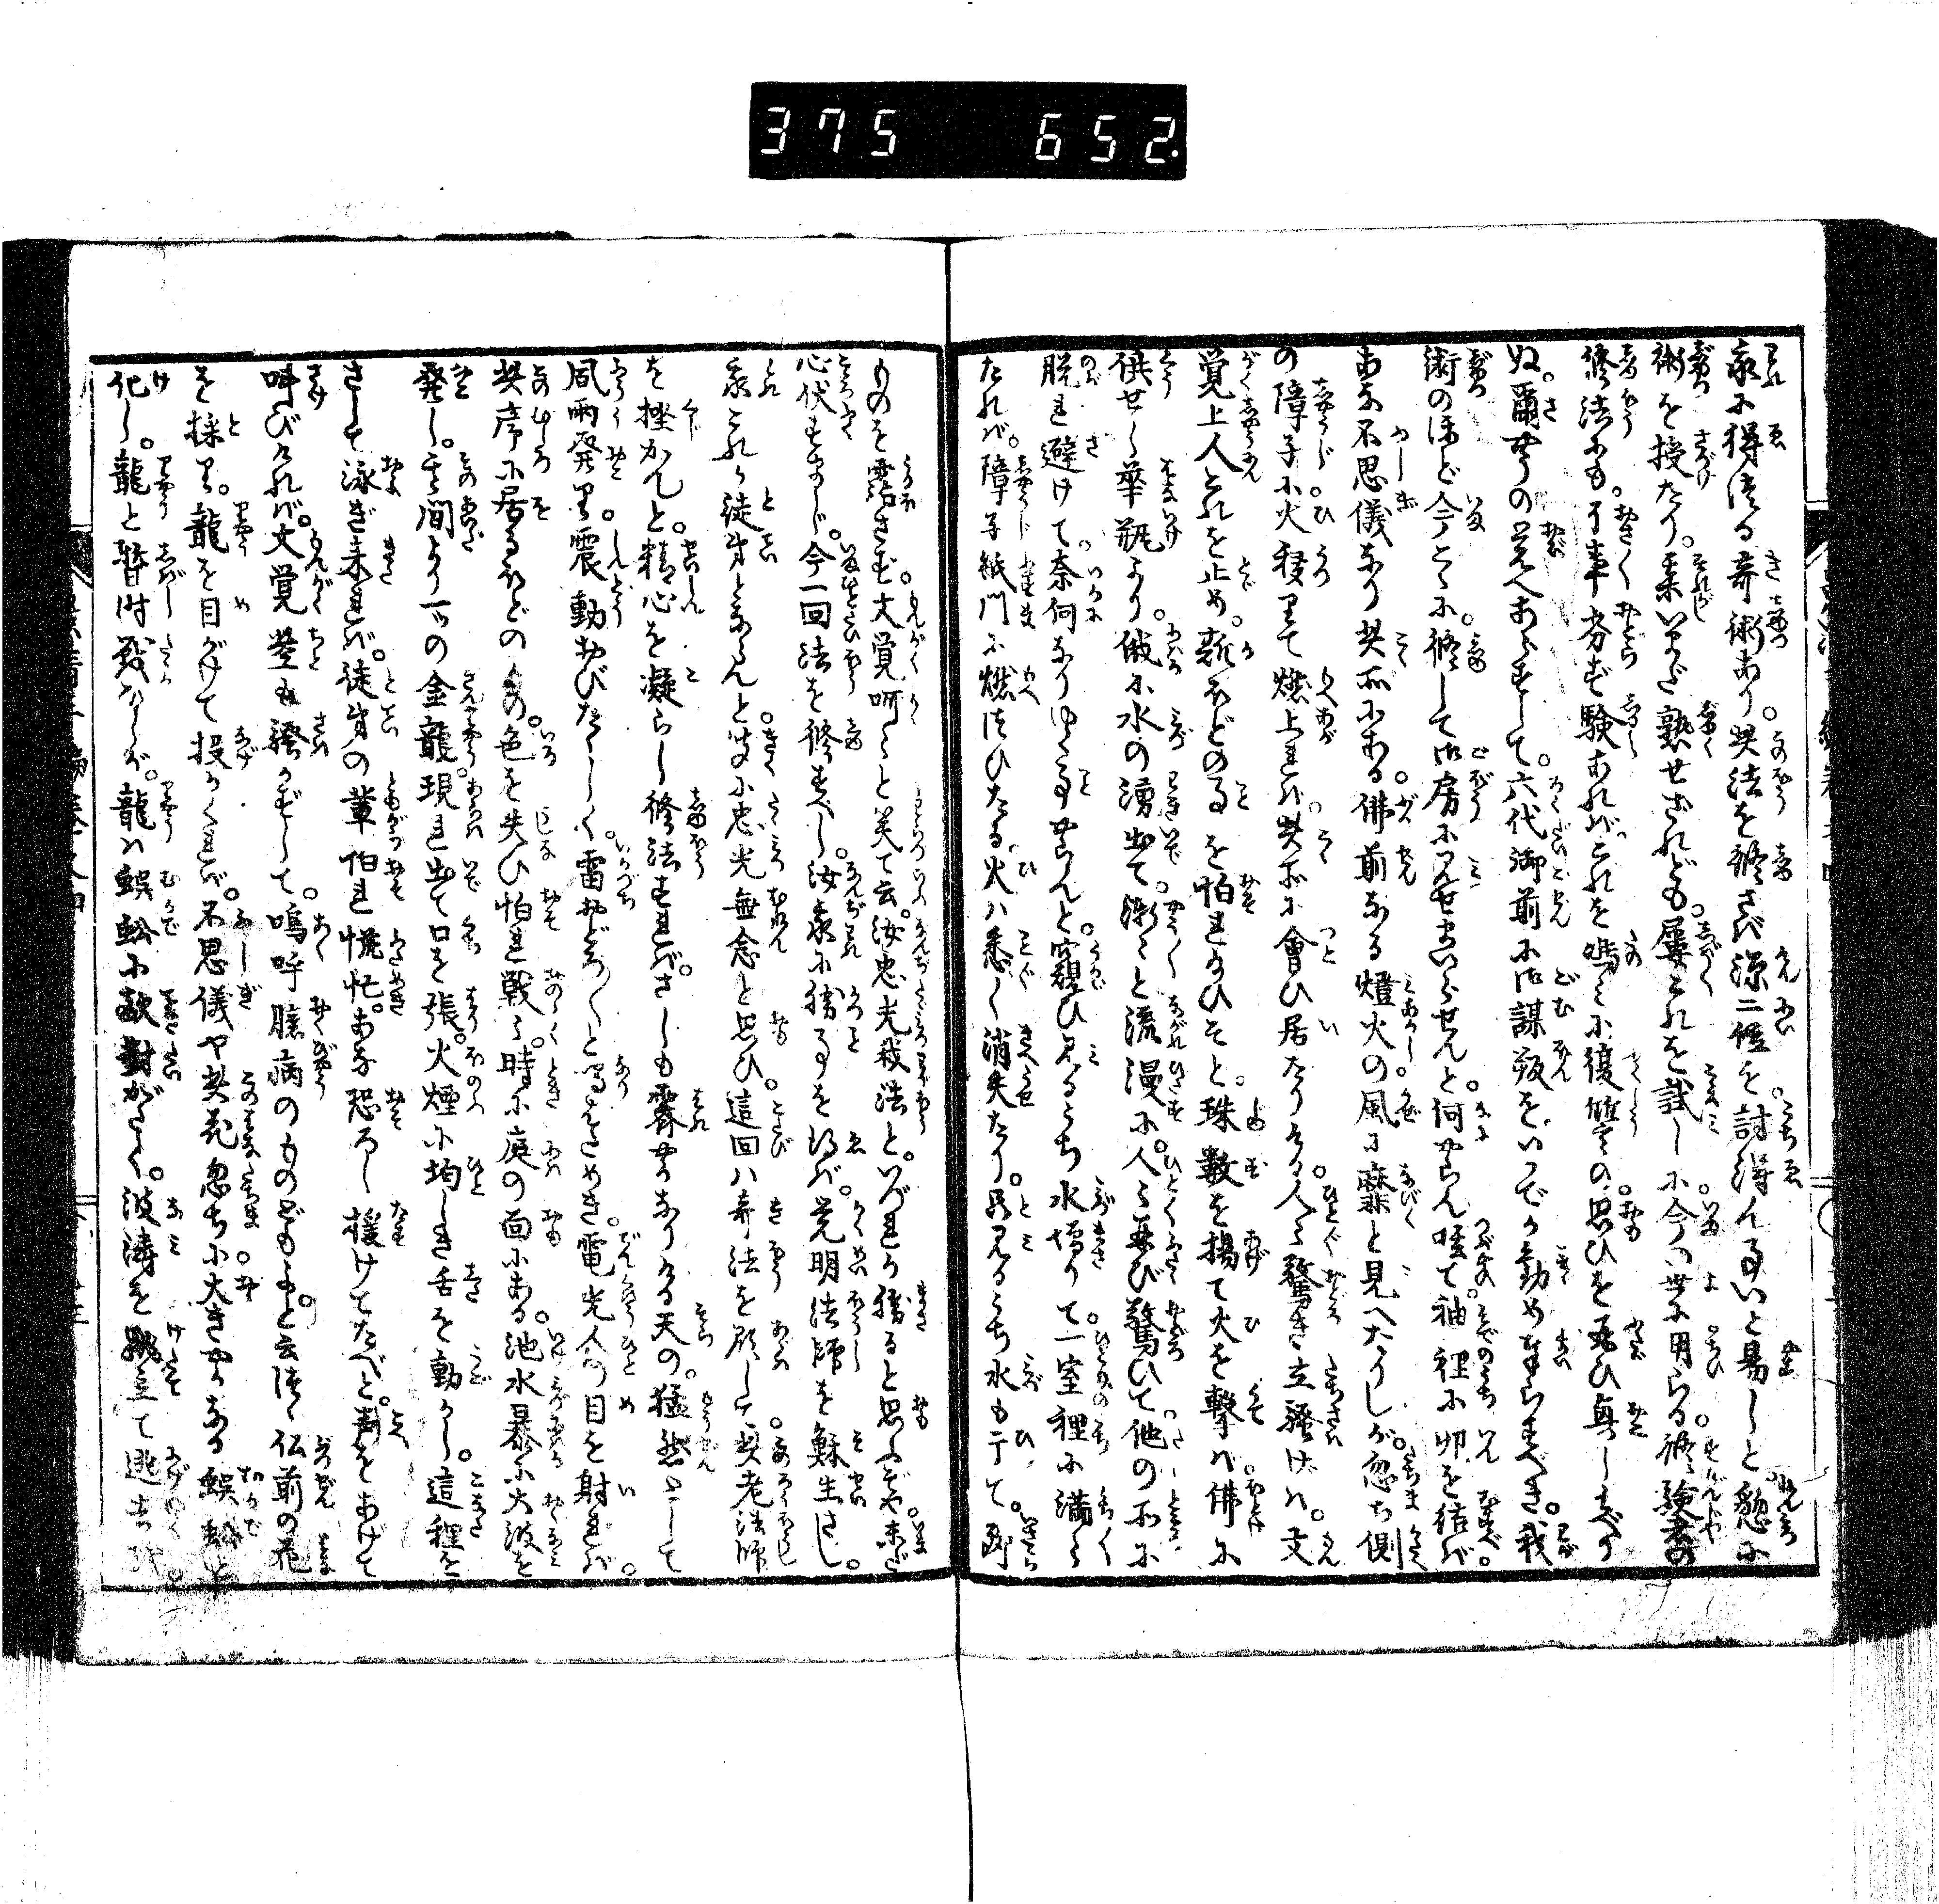 375 652
我に得たる奇術あり。其法を修さば源二位を討得ん事いと易しと懇に
術を授たり。某いまだ熟せざれども。屡これを試しに今の世に用らる。修験者の
修法にも。事劣ず験あれば。これを
ぬ。爾のみの覚へあらずして。六代御前に御謀叛をいつでか勧めまゐらすべき。我
術のほど今こゝに。修して御房に見せまゐらせんと。何やらん咒て。袖裡に印を結ば。
あな不思儀なり其所にある。佛前なる燈火の風に靡と見へたりしが。忽ち側
の障子に火移りて燃上れば。其所に會ひ居たりける。人々驚き立騒げば。文
覚上人これを止め。斯ほどの事を怕れ給ひそと。珠數を揚て火を撃ば。佛に
供せし華瓶より。俄に水の湧出て。漸々と流漫に。人々再び驚ひて他の所に
脱れ避けて。奈何なりゆく事やらんと。窺ひ見るうち水増りて。一室裡に満々
たれば。障子紙門に燃つひたる。火は悉く消失たり。と見るうち水も干て。
ものを霑さず。文覚呵々と笑て云。汝忠光我法と。いづれか勝ると思ふぞや。未だ
心伏せまじ。今一回法を修すべし。汝我に勝事を得ば。覚明法師を穌生さし。
我これが徒弟とならんと。笑に忠光無念と思ひ。這回は奇法を顕して。其老法師
を挫かんと。精心を凝らし修法すれば。さしも霽やかなりける天の。猛然として
風雨発り。震動おびたゝしく。雷おどろ〳〵と鳴はためき。電光人の目を射れば。
其席に居るほどのもの。色を失ひ怕れ戦く。時に庭の面にある。池水暴に大波を
発し。其間より一ツの金龍。現れ出て口を張。火煙に均しき舌を動かし。這裡を
さして泳ぎ来れば。徒弟の輩怕れ慌忙。あな恐ろし援けてたべと。声をあげて
叫びければ。文覚些も騒がずして。嗚呼臆病のものどもよと云つゝ。仏前の花
を採り。龍を目がけて投かくれば。不思儀や其花忽ちに大きやかなる蜈蚣と
化し。龍と暫時戦ひしが。龍は蜈蚣に敵對がたく。波濤を蹴立て逃去ば。